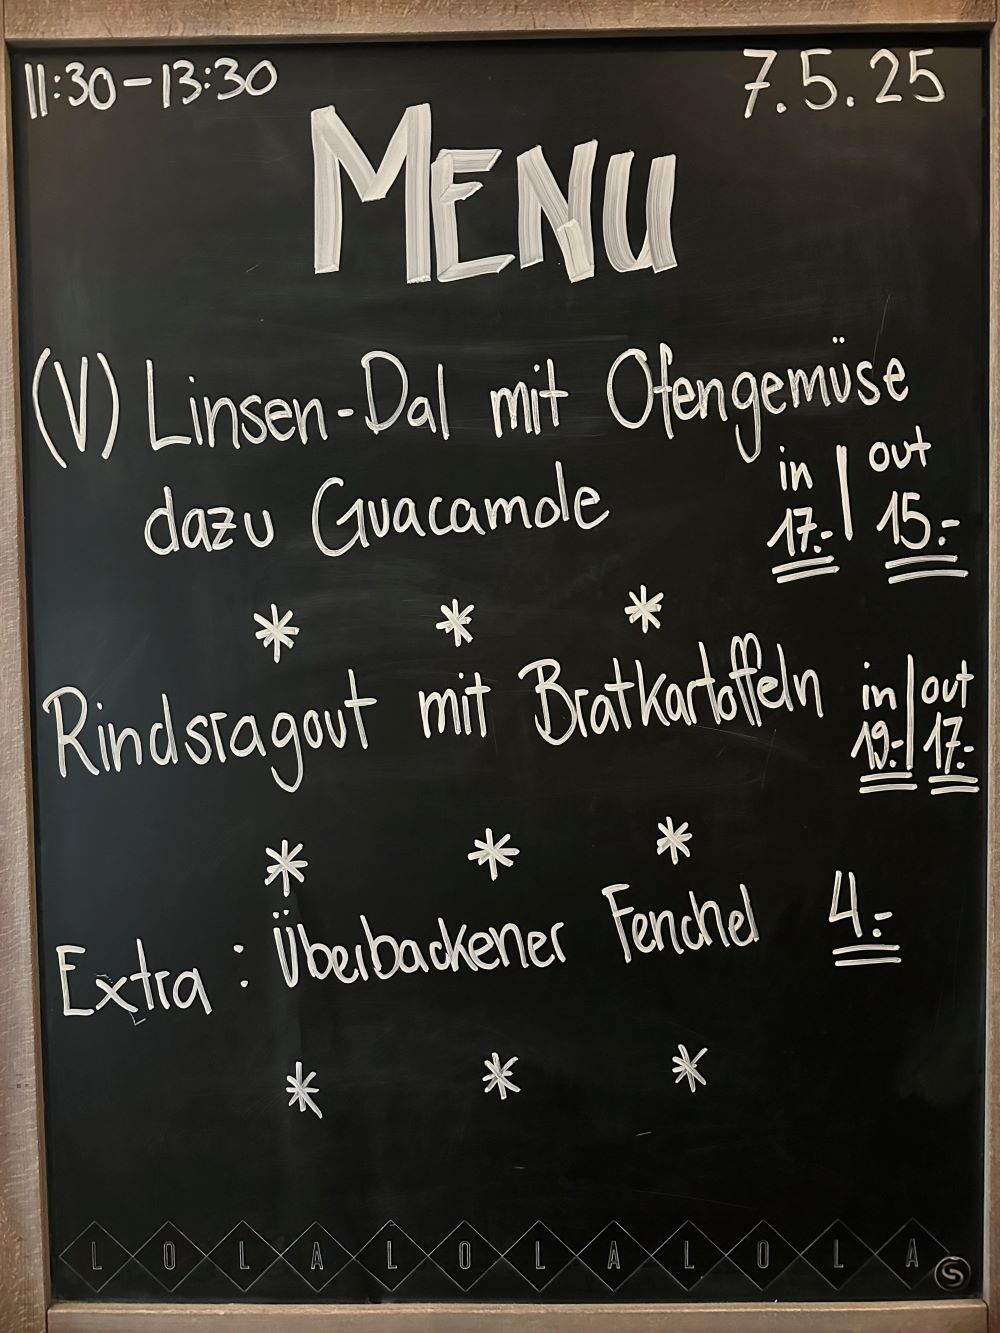 11:30-13:30 7.5.25
MENU
(V) Linsen-Dal mit Ofengemüse
dazu Guacamole
in | out
17.- | 15.-
* * *
Rindsragout mit Bratkartoffeln
in | out
19.- | 17.-
* * *
Extra: Überbackener Fenchel 4.-
* * *
L O L A L O L A L O L A
S